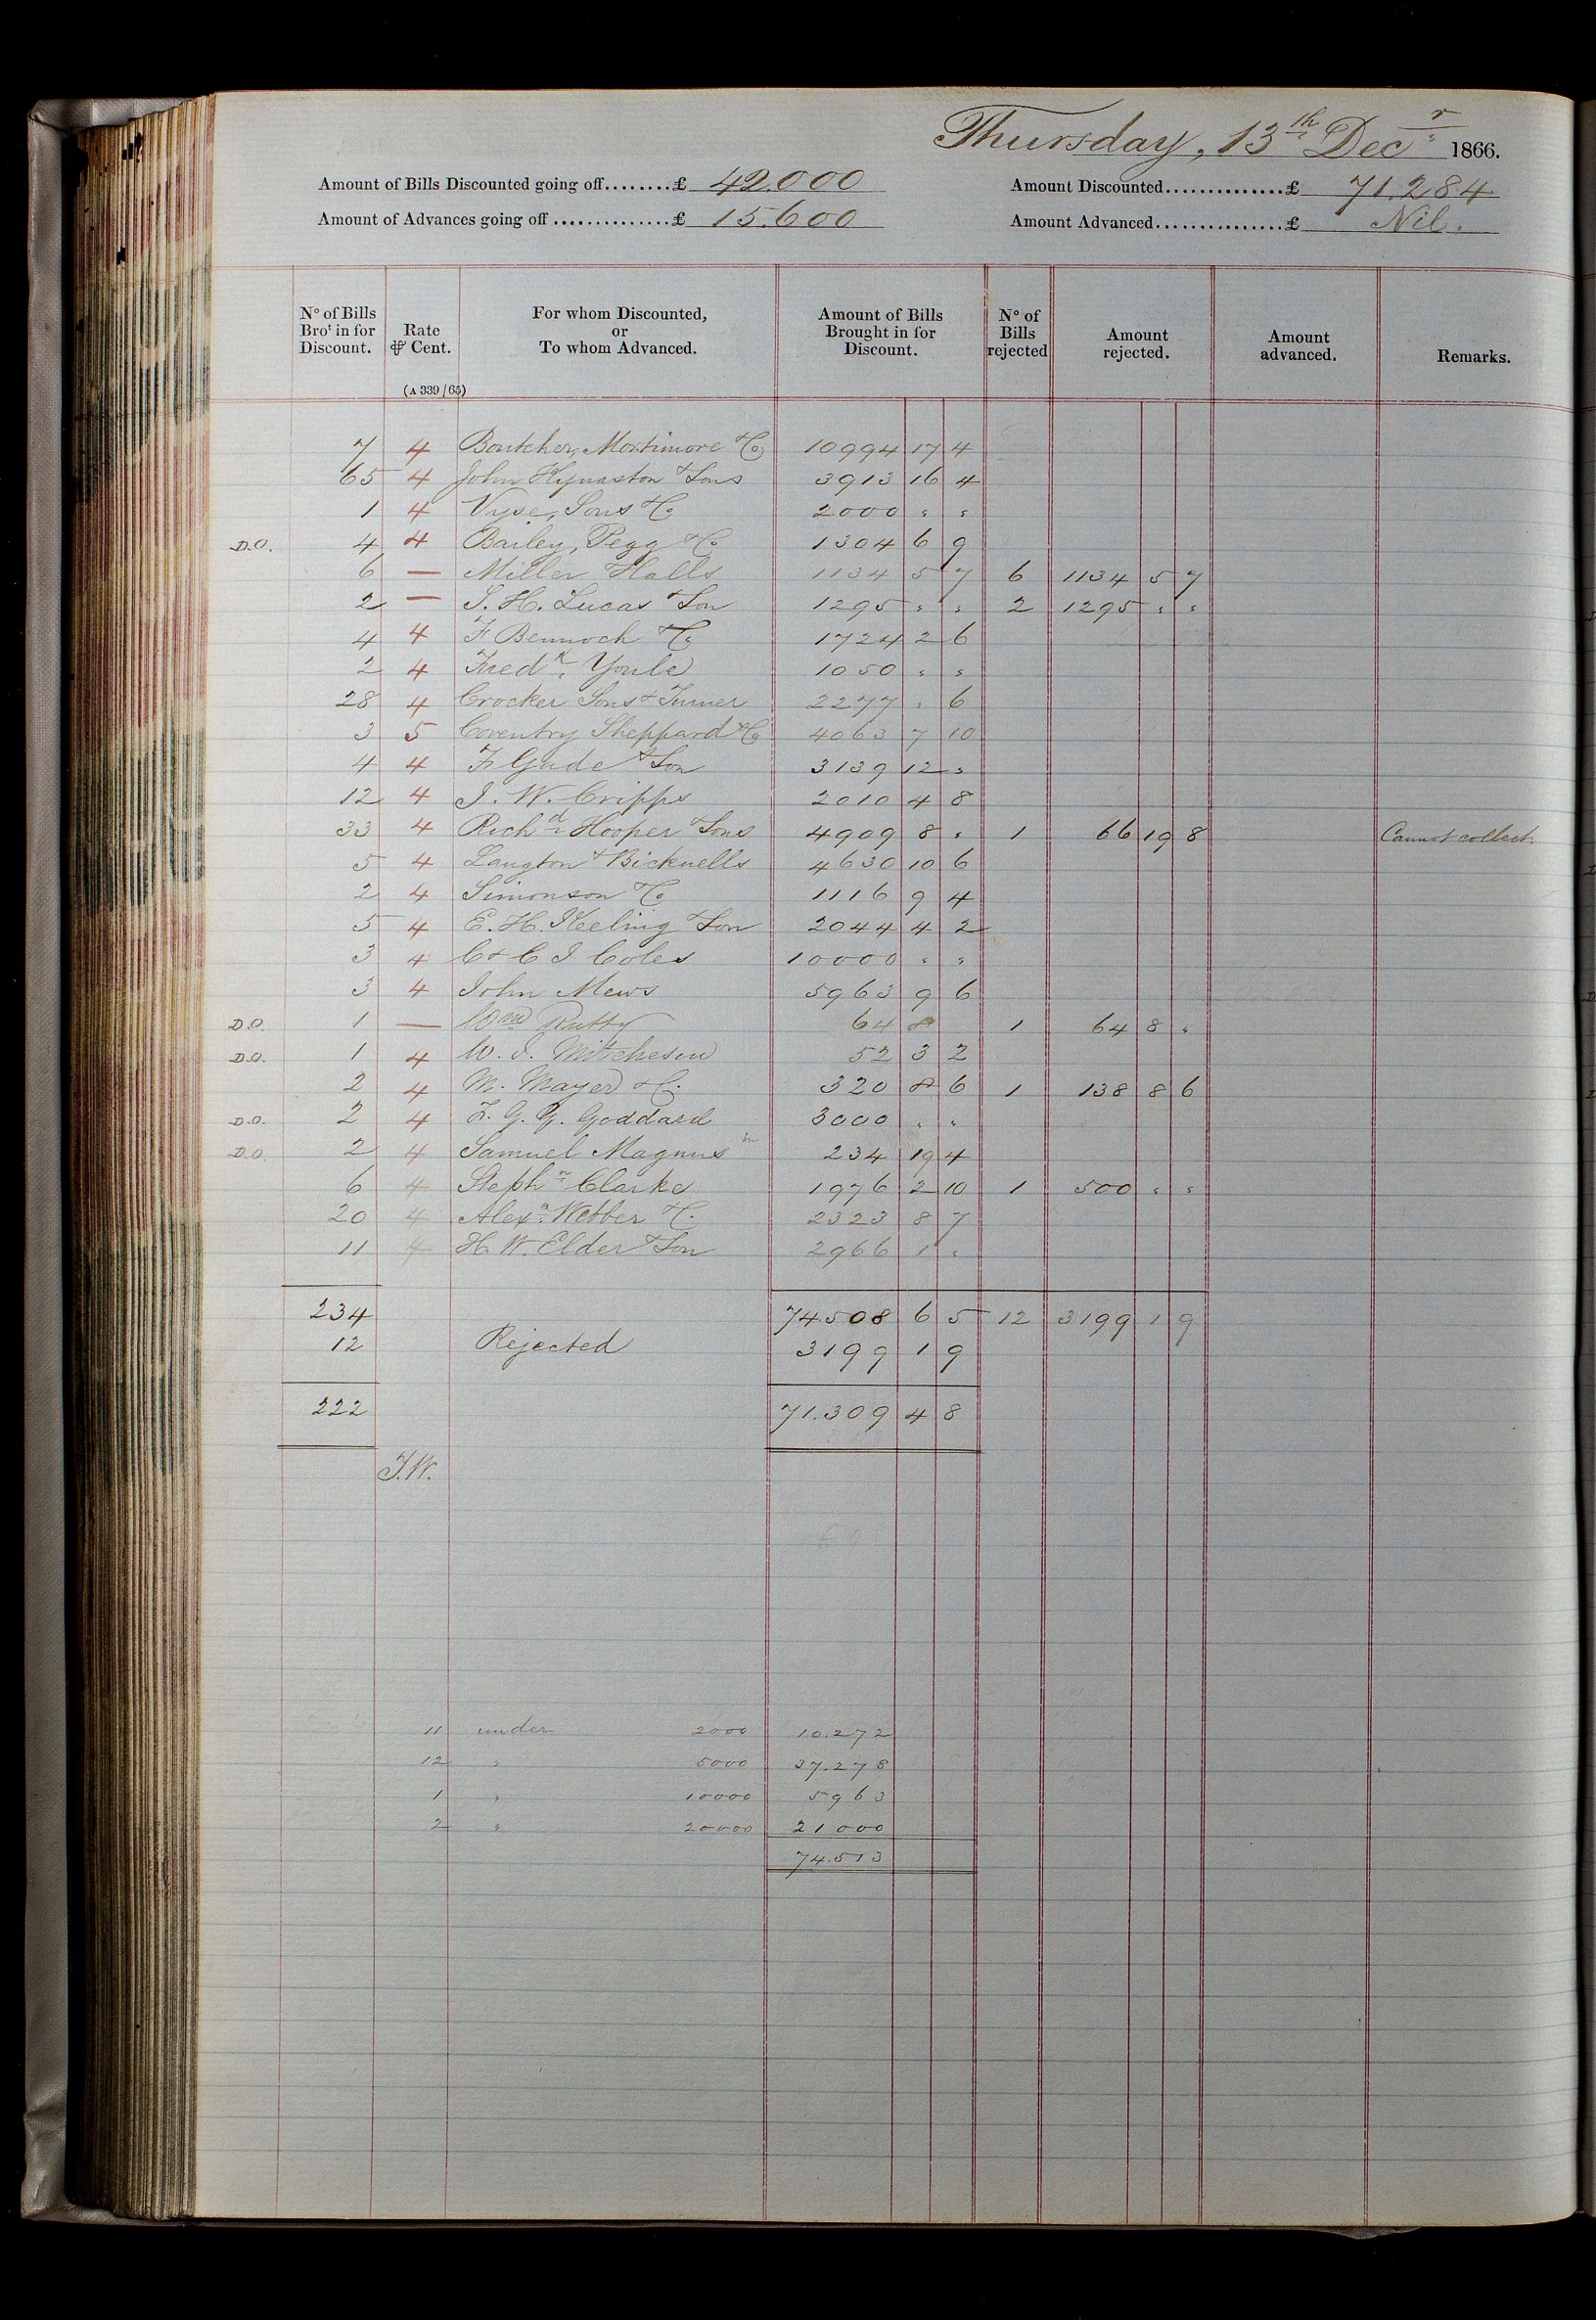 Thursday, 13th Decr 1866.
Amount of Bills Discounted going off........£ 42.000
Amount Discounted...............£ 71.284
Amount of Advances going off..............£ 15.600
Amount Advanced................£ Nil.
No of Bills Brot in for Discount. Rate ⅌ Cent. For whom Discounted, or To whom Advanced. Amount of Bills Brought in for Discount. No of Bills rejected Amount rejected. Amount advanced. Remarks.
(A 339/65)
7 4 Boutcher, Mortimore & Co 10994 17 4
65 4 John Hynaston & Sons 3913 16 4
1 4 Vyse, Sons & Co 2000 " "
D.O. 4 4 Bailey, Pegg & Co 1304 6 9
6 — Miller Halls 1134 5 7 6 1134 5 7
2 — S. H. Lucas & Son 1295 " " 2 1295 " "
4 4 F Bennoch & Co 1724 2 6
2 4 Fredk. Youle 1050 " "
28 4 Crocker Sons & Turner 2277 " 6
3 5 Coventry Sheppard & Co 4063 7 10
4 4 F Gade & Son 3139 12 "
12 4 J. W. Cripps 2010 4 8
33 4 Richd Hooper & Sons 4909 8 " 1 66 19 8 Cannot collect.
5 4 Langton & Bicknells 4630 10 6
2 4 Simonson & Co 1116 9 4
5 4 E. H. Keeling & Son 2044 4 2
3 4 C & C J Coles 10000 " "
3 4 John Mews 5963 9 6
D.O. 1 — Wm Rutty 64 8 1 64 8 "
D.O. 1 4 W. J. Mitcheson 52 3 2
2 4 M. Mayer & C. 320 8 6 1 138 8 6
D.O. 2 4 F. G. G. Goddard 3000 " "
D.O. 2 4 Samuel Magnus 234 19 4
6 4 Stephn Clarke 1976 2 10 1 500 " "
20 4 Alexr. Webber & C. 2323 8 7
11 4 H. W. Elder & Son 2966 1 "
234 74508 6 5 12 3199 1 9
12 Rejected 3199 1 9
222 71.309 4 8
J.W.
11 under 2000 10.272
12 " 5000 37.278
1 " 10000 5963
2 " 20000 21000
74.513